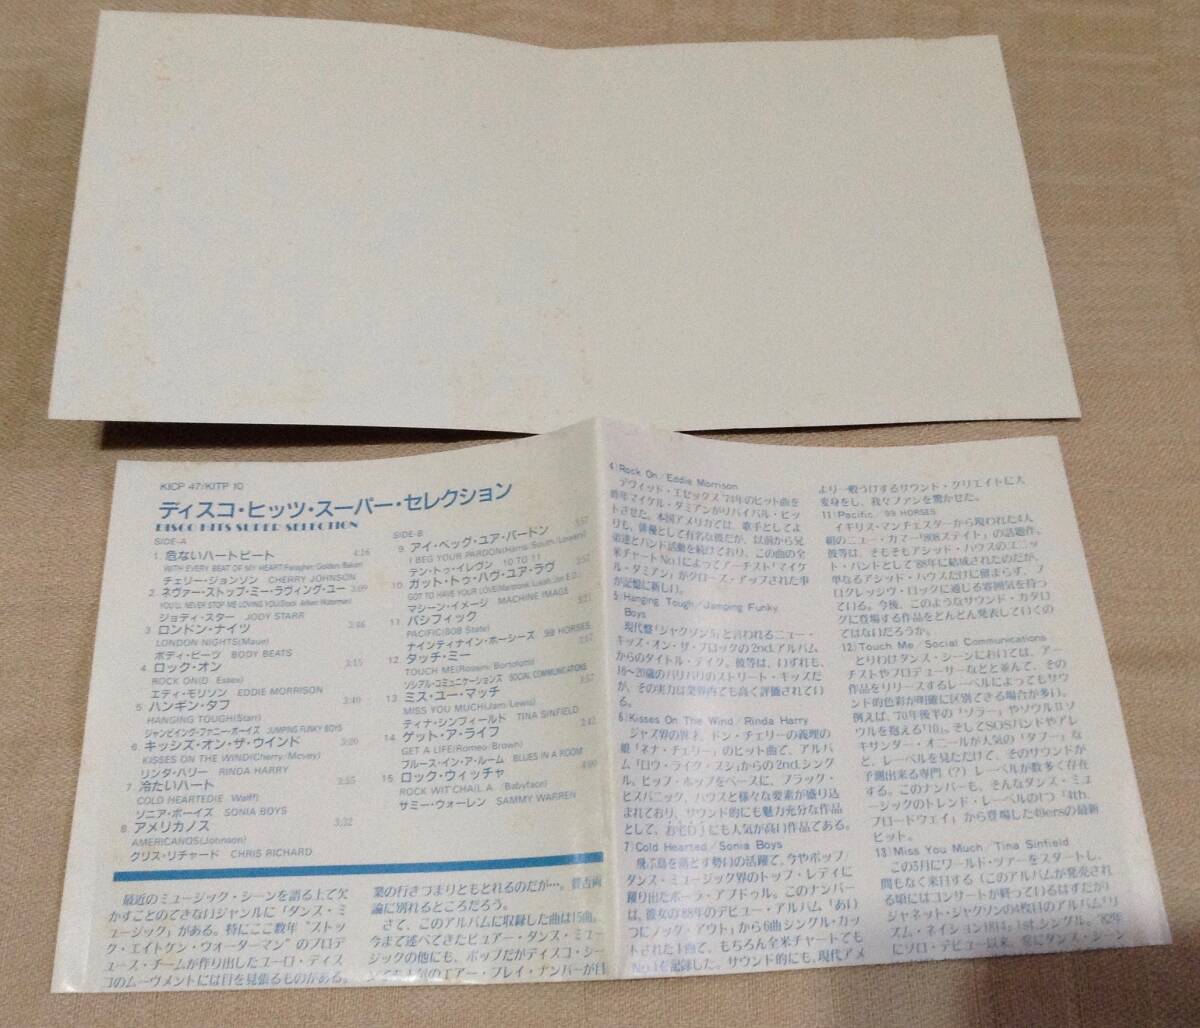 KICP 47/KITP 10
ディスコ・ヒッツ・スーパー・セレクション
DISCO HITS SUPER SELECTION
SIDE-A
1. 危ないハートビート 4:16
WITH EVERY BEAT OF MY HEART
チェリー・ジョンソン CHERRY JOHNSON
2. ネヴァー・ストップ・ミー・ラヴィング・ユー 3:09
YOU'LL NEVER STOP ME LOVING YOU
ジョディ・スター JODY STARR
3. ロンドン・ナイツ 3:46
LONDON NIGHTS(Maue)
ボディ・ビーツ BODY BEATS
4. ロック・オン 3:15
ROCK ON(D. Essex)
エディ・モリソン EDDIE MORRISON
5. ハンギン・タフ 3:49
HANGING TOUGH(Starr)
ジャンピイング・ファニー・ボーイズ JUMPING FUNKY BOYS
6. キッシズ・オン・ザ・ウインド 3:20
KISSES ON THE WIND(Cherry/Mcvey)
リンダ・ハリー RINDA HARRY
7. 冷たいハート 3:55
COLD HEARTED(E. Wolff)
ソニア・ボーイズ SONIA BOYS
8. アメリカノス 3:32
AMERICANOS(Johnson)
クリス・リチャード CHRIS RICHARD
SIDE-B
9. アイ・ベッグ・ユア・パードン 3:57
I BEG YOUR PARDON
テン・トゥ・イレヴン 10 TO 11
10. ガット・トゥ・ハヴ・ユア・ラヴ 3:52
GOT TO HAVE YOUR LOVE
マシーン・イメージ MACHINE IMAGE
11. パシフィック
PACIFIC(808 State)
ナインティナイン・ホーシーズ '99 HORSES
12. タッチ・ミー 3:57
TOUCH ME(Rossini/Bortolotti)
ソシアル・コミュニケーションズ SOCIAL COMMUNICATIONS
13. ミス・ユー・マッチ 3:57
MISS YOU MUCH(Jam/Lewis)
ティナ・シンフィールド TINA SINFIELD
14. ゲット・ア・ライフ 3:42
GET A LIFE(Romeo/Brown)
ブルース・イン・ア・ルーム BLUES IN A ROOM
15. ロック・ウィッチャ 4:00
ROCK WIT'CHA(L.A./Babyface)
サミー・ウォーレン SAMMY WARREN
最近のミュージック・シーンを語る上で欠
かすことのできないジャンルに「ダンス・ミ
ュージック」がある。特にここ数年“ストッ
ク・エイトケン・ウォーターマン”のプロデ
ュース・チームが作り出したユーロ・ディス
コのムーヴメントには目を見張るものがある。
業の行きづまりともとれるのだが…。賛否両
論に別れるところだろう。
さて、このアルバムに収録した曲は15曲。
今まで述べてきたピュアー・ダンス・ミュー
ジックの他にも、ポップだがディスコ・シー
ンでも人気のエアー・プレイ・ナンバーが目
4)Rock On/Eddie Morrison
デヴィッド・エセックス'74年のヒット曲を
昨年マイケル・ダミアンがリバイバル・ヒッ
トさせた。本国アメリカでは、歌手としてよ
りも、俳優として有名な彼だが、以前から兄
弟達とバンド活動を続けており、この曲の全
米チャートNo.1によってアーチスト「マイケ
ル・ダミアン」がクローズ・アップされた事
が記憶に新しい。
5)Hanging Tough/Jamping Funky
Boys
現代盤「ジャクソン5」と言われるニュー・
キッズ・オン・ザ・ブロックの2nd.アルバム
からのタイトル・テイク。彼等は、いずれも、
16〜20歳のバリバリのストリート・キッズだ
が、その実力は業界内でも高く評価されてい
る。
6)Kisses On The Wind/Rinda Harry
ジャズ界の異才、ドン・チェリーの義理の
娘「ネナ・チェリー」のヒット曲で、アルバ
ム「ロウ・ライク・スシ」からの2nd.シング
ル。ヒップ・ホップをベースに、ブラック・
ヒスパニック、ハウスと様々な要素が盛り込
まれており、サウンド的にも魅力充分な作品
として、にも人気が高い作品である。
7)Cold Hearted/Sonia Boys
飛ぶ鳥を落とす勢いの活躍で、今やポップ/
ダンス・ミュージック界のトップ・レディに
躍り出たポーラ・アブドゥル。このナンバー
は、彼女の'88年のデビュー・アルバム「あい
つにノック・アウト」から6曲シングル・カッ
トされた1曲で、もちろん全米チャートでも
No.1を記録した。サウンド的にも、現代アメ
より一般うけするサウンド・クリエイトに大
変身をし、我々ファンを驚かせた。
11)Pacific/'99 HORSES
イギリス・マンチェスターから現われた4人
組のニュー・カマー「808ステイト」の話題作。
彼等は、そもそもアシッド・ハウスのユニッ
ト・バンドとして'88年に結成されたのだが、
単なるアシッド・ハウスだけに留まらず、プ
ログレッシヴ・ロックに通じる雰囲気を持っ
ている。今後、このようなサウンド・カタロ
グに登場する作品をどんどん発表していくの
ではないだろうか。
12)Touch Me/Social Communications
とりわけダンス・シーンにおいては、アー
チストやプロデューサーなどと並んで、その
作品をリリースするレーベルによってもサウ
ンド的色彩が明確に区別できる場合が多い。
例えば、'70年後半の「ソラー」やソウルIIソ
ウルを抱える「10」。そしてSOSバンドやアレ
キサンダー・オニールが人気の「タブー」な
ど、レーベルを見ただけで、そのサウンドが
予測出来る専門(?)レーベルが数多く存在
する。このナンバーも、そんなダンス・ミュ
ージックのトレンド・レーベルの1つ「4th.
ブロードウェイ」から登場した49ersの最新
ヒット。
13)Miss You Much/Tina Sinfield
この3月にワールド・ツアーをスタートし、
間もなく来日する(このアルバムが発売され
る頃にはコンサートが終っているはずだが)
ジャネット・ジャクソンの4枚目のアルバム「リ
ズム・ネイション1814」1st.シングル。'82年
にソロ・デビュー以来、常にダンス・シーン